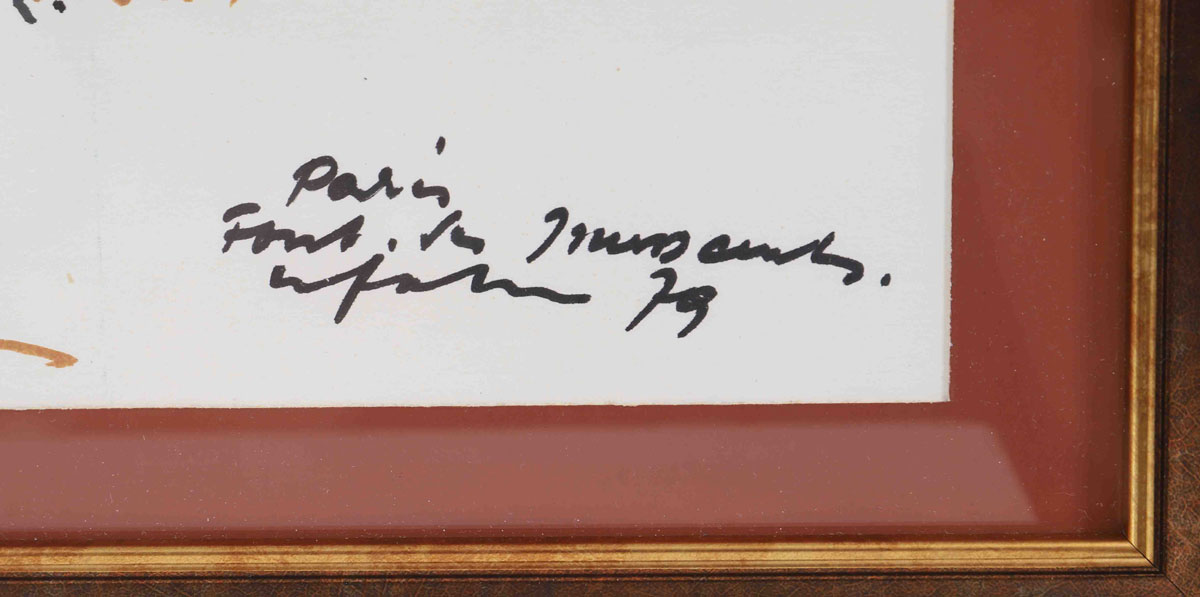 Paris
Font. des Innocents.
79